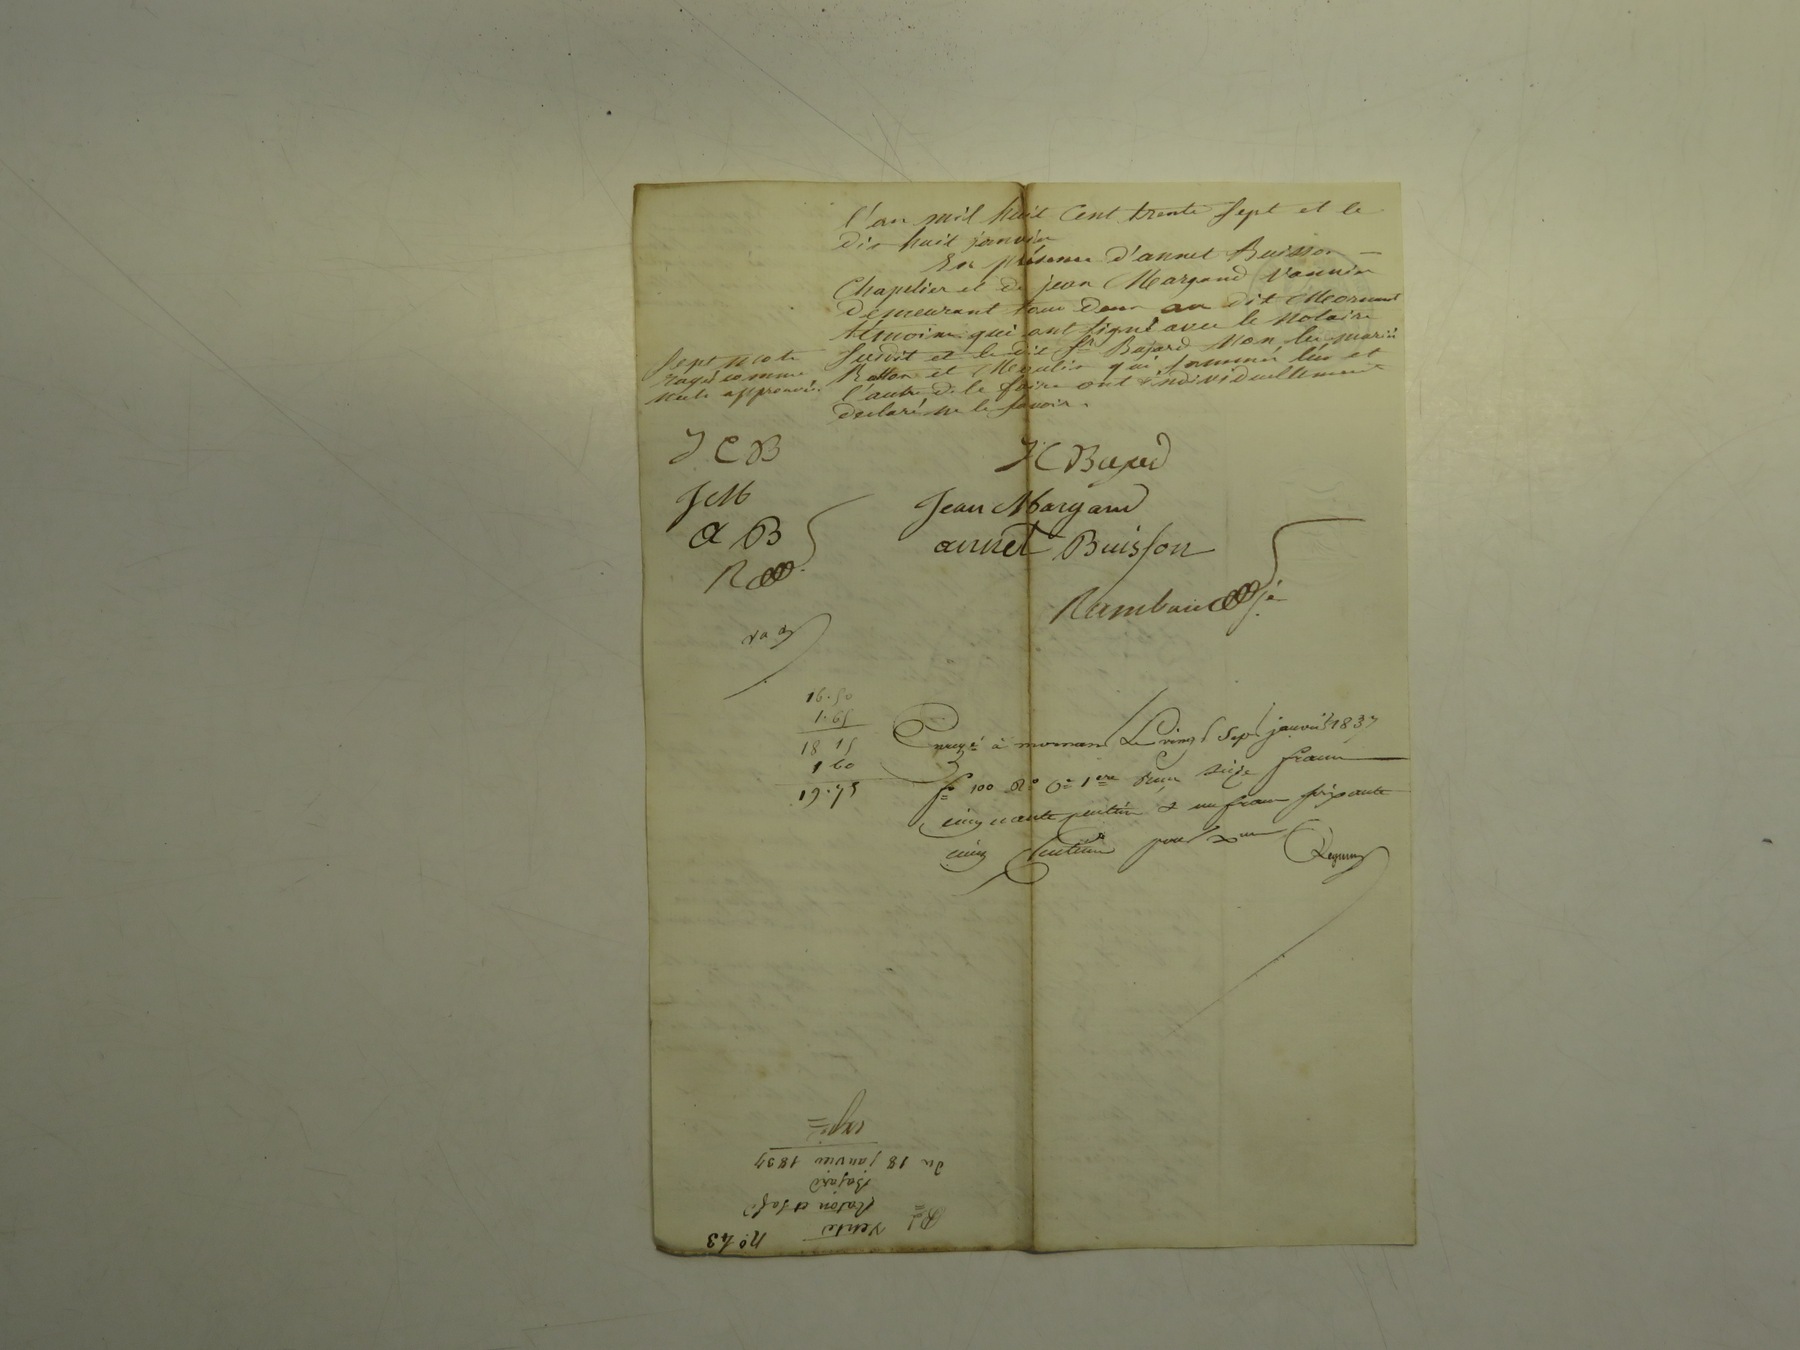 l'an mil huit Cent trente sept et le
dix huit janvier
En présence d'annet Buisson
Chapelier et de jean Margand Vannier
demeurant tous deux au dit Mornant
témoins qui ont signé avec le Notaire
susdit et le dit Sr Bajard Non les mariés
Ratton et qui sommés l'un et
l'autre de le faire ont individuellement
declaré ne le savoir.
Sept mots
rayés comme
nuls approuvés
J C B
J C Bajard
J M
Jean Margand
a B
annet Buisson
R
Rambaud
Enregé à mornant Le vingt Sept janvier 1837
fo 100 Ro Ce 1ere Reçu francs
cinquante centimes & un franc soixante
cinq Centimes pour Xme
51 81
1 60
no. 43
Vente
Raton et
Bajard
du 18 janvier 1837
expée